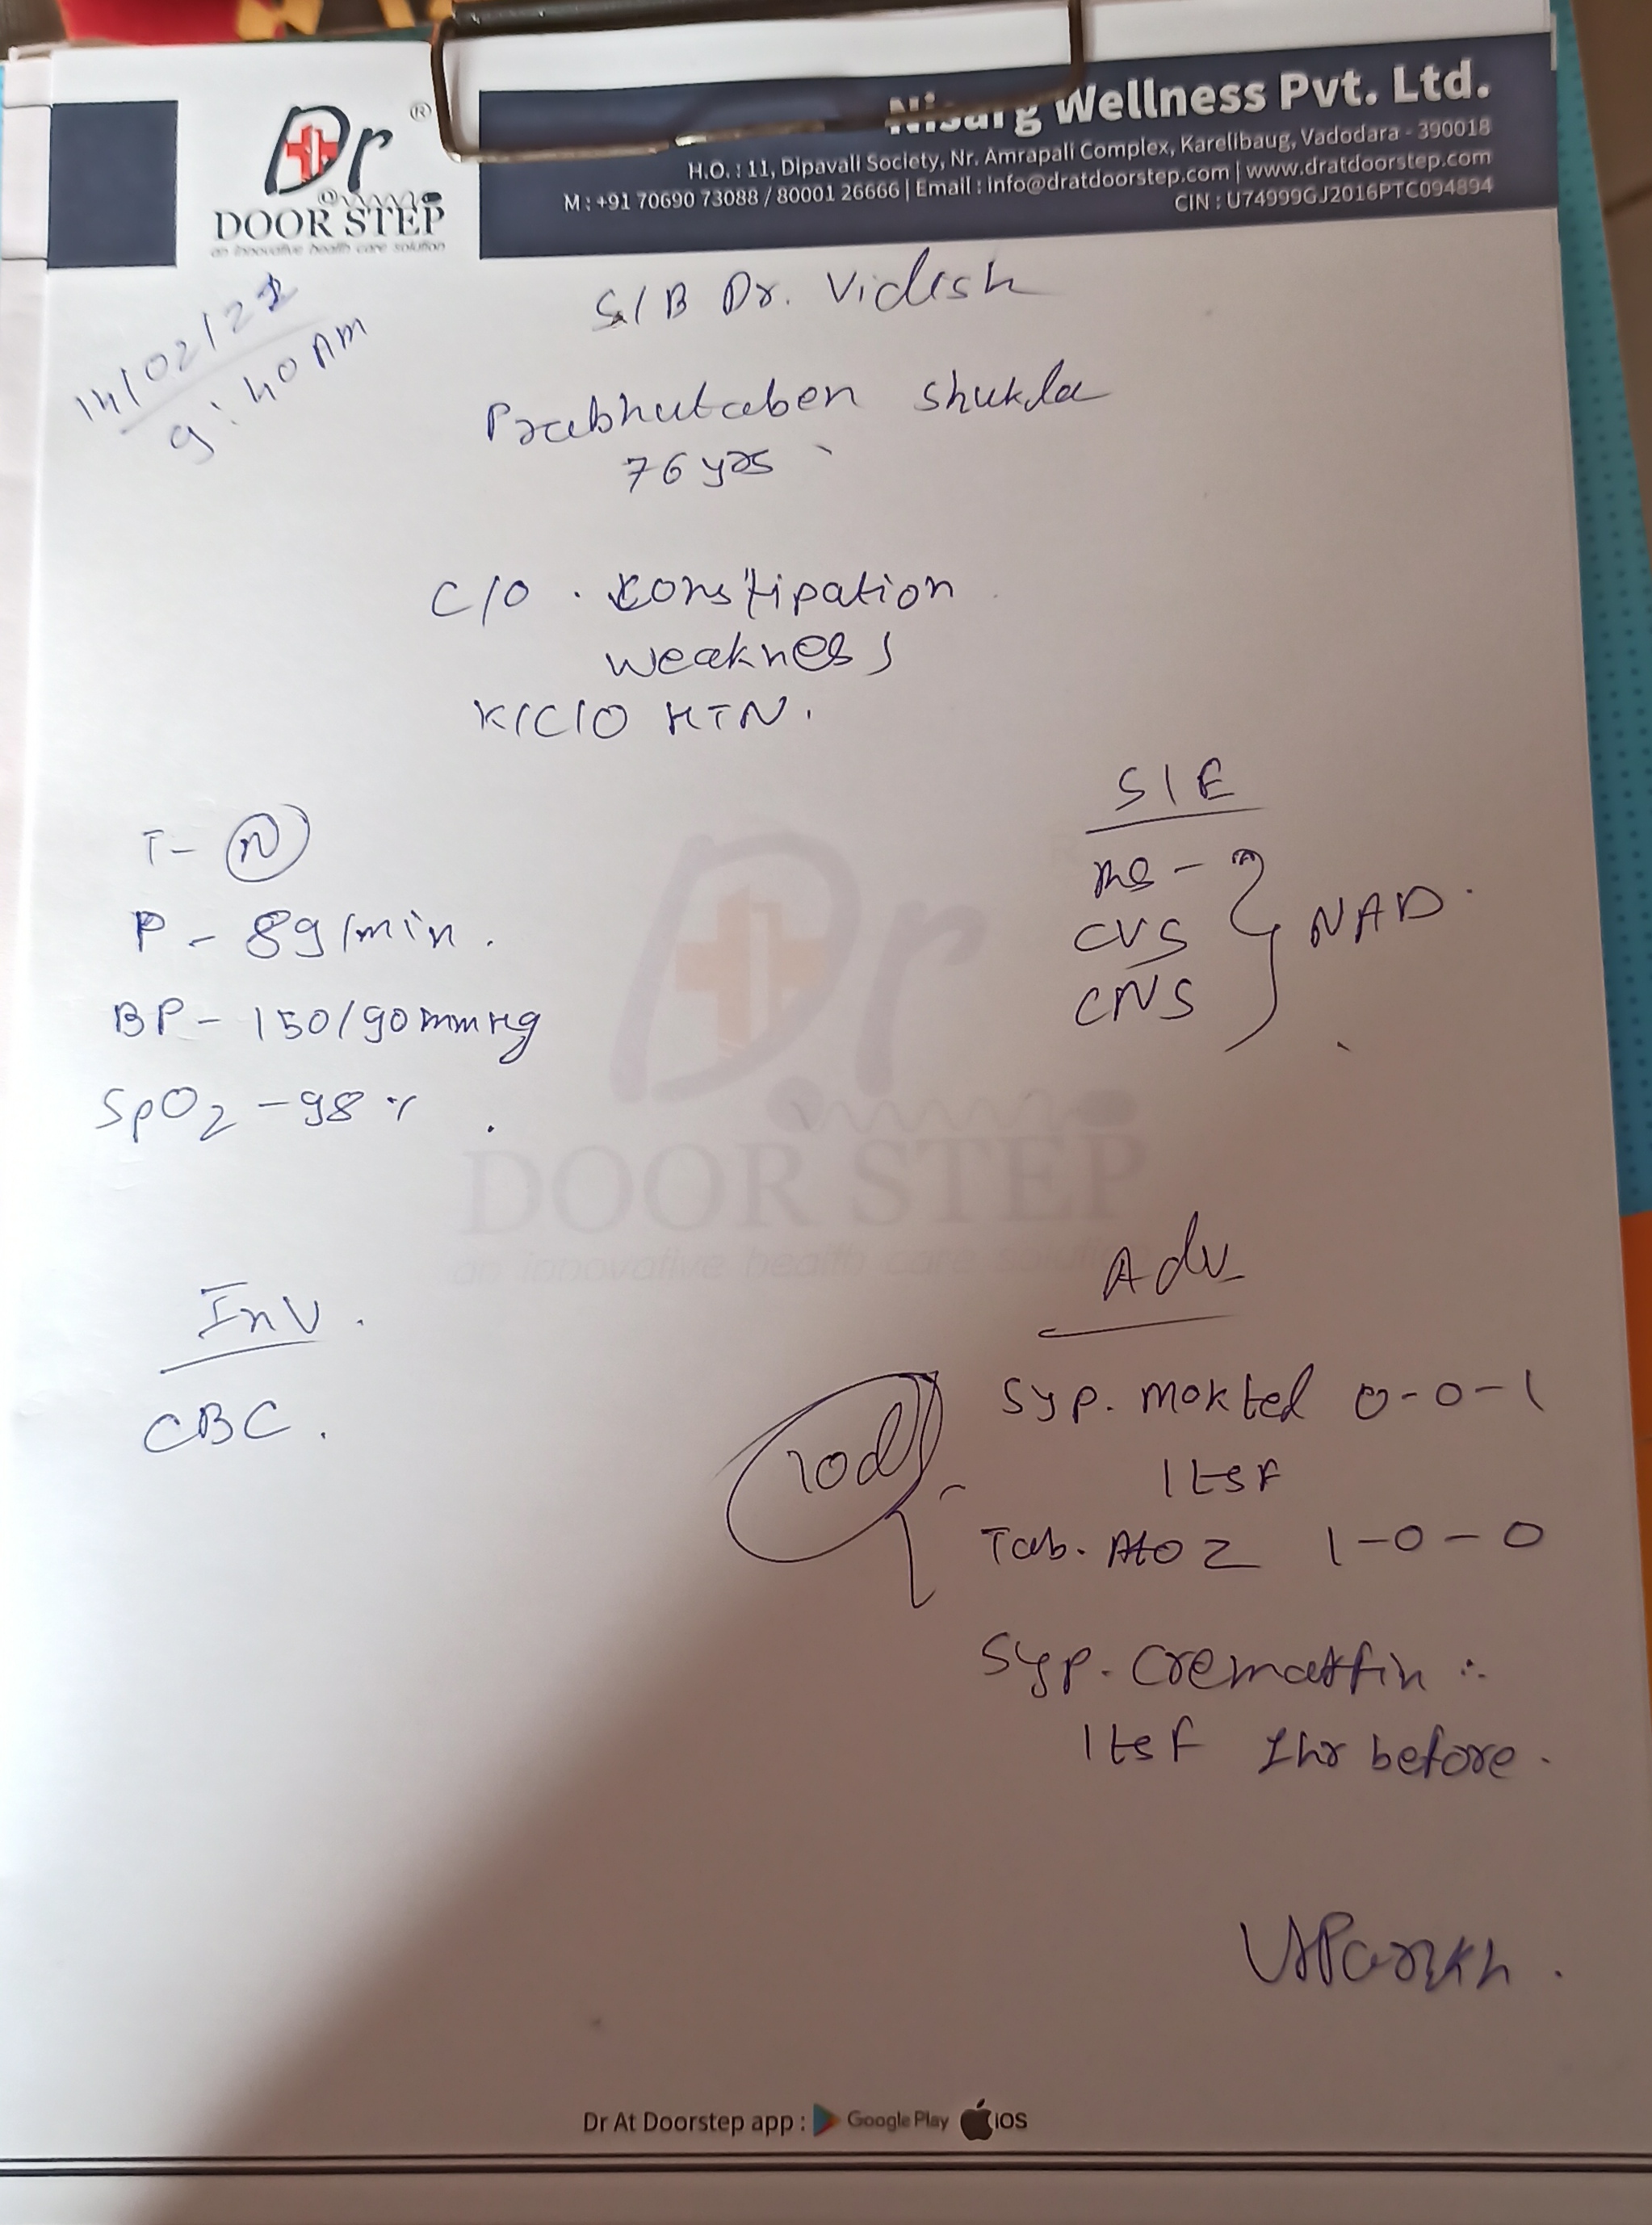 Dr
®
@
DOOR STEP
an innovative health care solution
Nisarg Wellness Pvt. Ltd.
H.O. : 11, Dipavali Society, Nr. Amrapali Complex, Karelibaug, Vadodara - 390018
M : +91 70690 73088 / 80001 26666 | Email : info@dratdoorstep.com | www.dratdoorstep.com
CIN : U74999GJ2016PTC094894
14/02/22
9:40 AM
S/B Dr. Vidish
Prabhutaben Shukla
76 yrs
C/O . constipation
weakness
K/C/O HTN.
T- N
P - 89/min.
BP - 150/90 mmHg
SpO2 - 98 %
S/E
RS -
CVS
CNS
NAD
Dr
DOOR STEP
an innovative health care solution
Inv.
CBC.
Adv
10d
Syp. Moktel 0-0-1
1 tsf
Tab. AtoZ 1-0-0
Syp. Cremaffin
1 tsf 1hr before.
Dr At Doorstep app : Google Play iOS